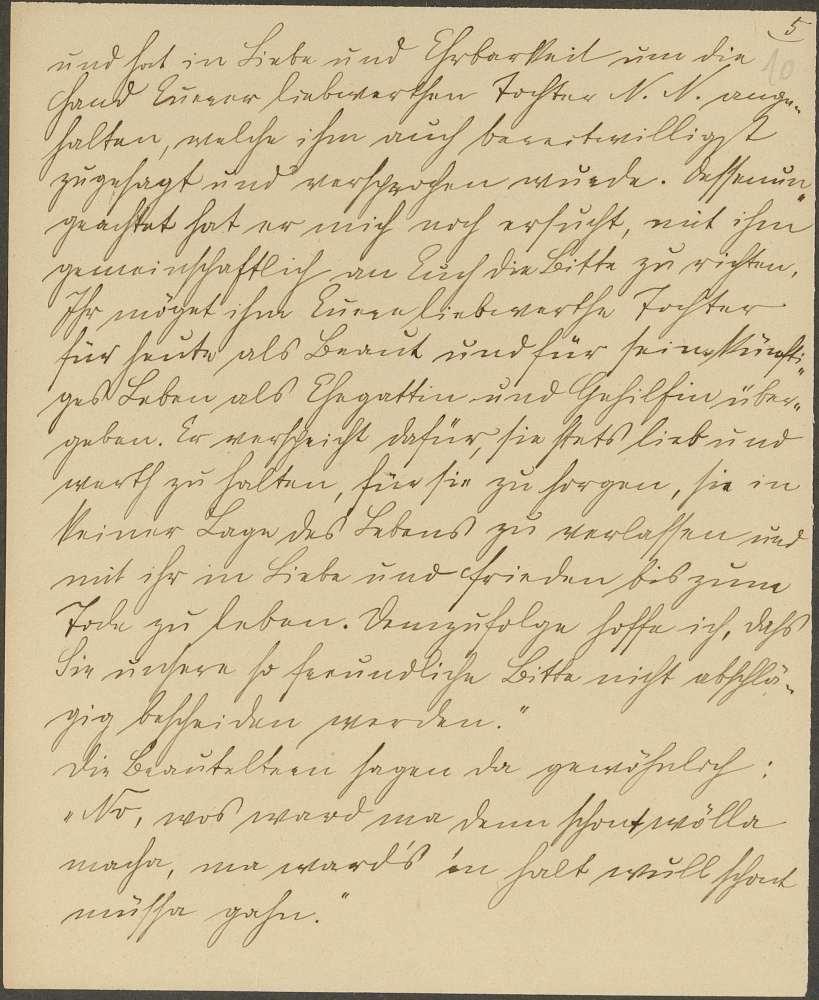 5
10
und hat in Liebe und Ehrbarkeit um die
Hand Euerer liebwerthen Tochter N. N. ange-
halten, welche ihm auch bereitwilligst
zugesagt und versprochen wurde. Dessenun-
geachtet hat er mich noch ersucht, mit ihm
gemeinschaftlich an Euch die Bitte zu richten,
Ihr möget ihm Euere liebwerthe Tochter
für heute als Braut und für sein künfti-
ges Leben als Ehegattin und Gehilfin über-
geben. Er verspricht dafür, sie stets lieb und
werth zu halten, für sie zu sorgen, sie in
keiner Lage des Lebens zu verlassen und
mit ihr in Liebe und Frieden bis zum
Tode zu leben. Demzufolge hoffe ich, dass
Sie unsere so freundliche Bitte nicht abschlä-
gig bescheiden werden."
Die Brauteltern sagen da gewöhnlich:
„No, wos ward ma denn schont wölla
macha, ma ward's 'n halt wull schont
müssa gahn."